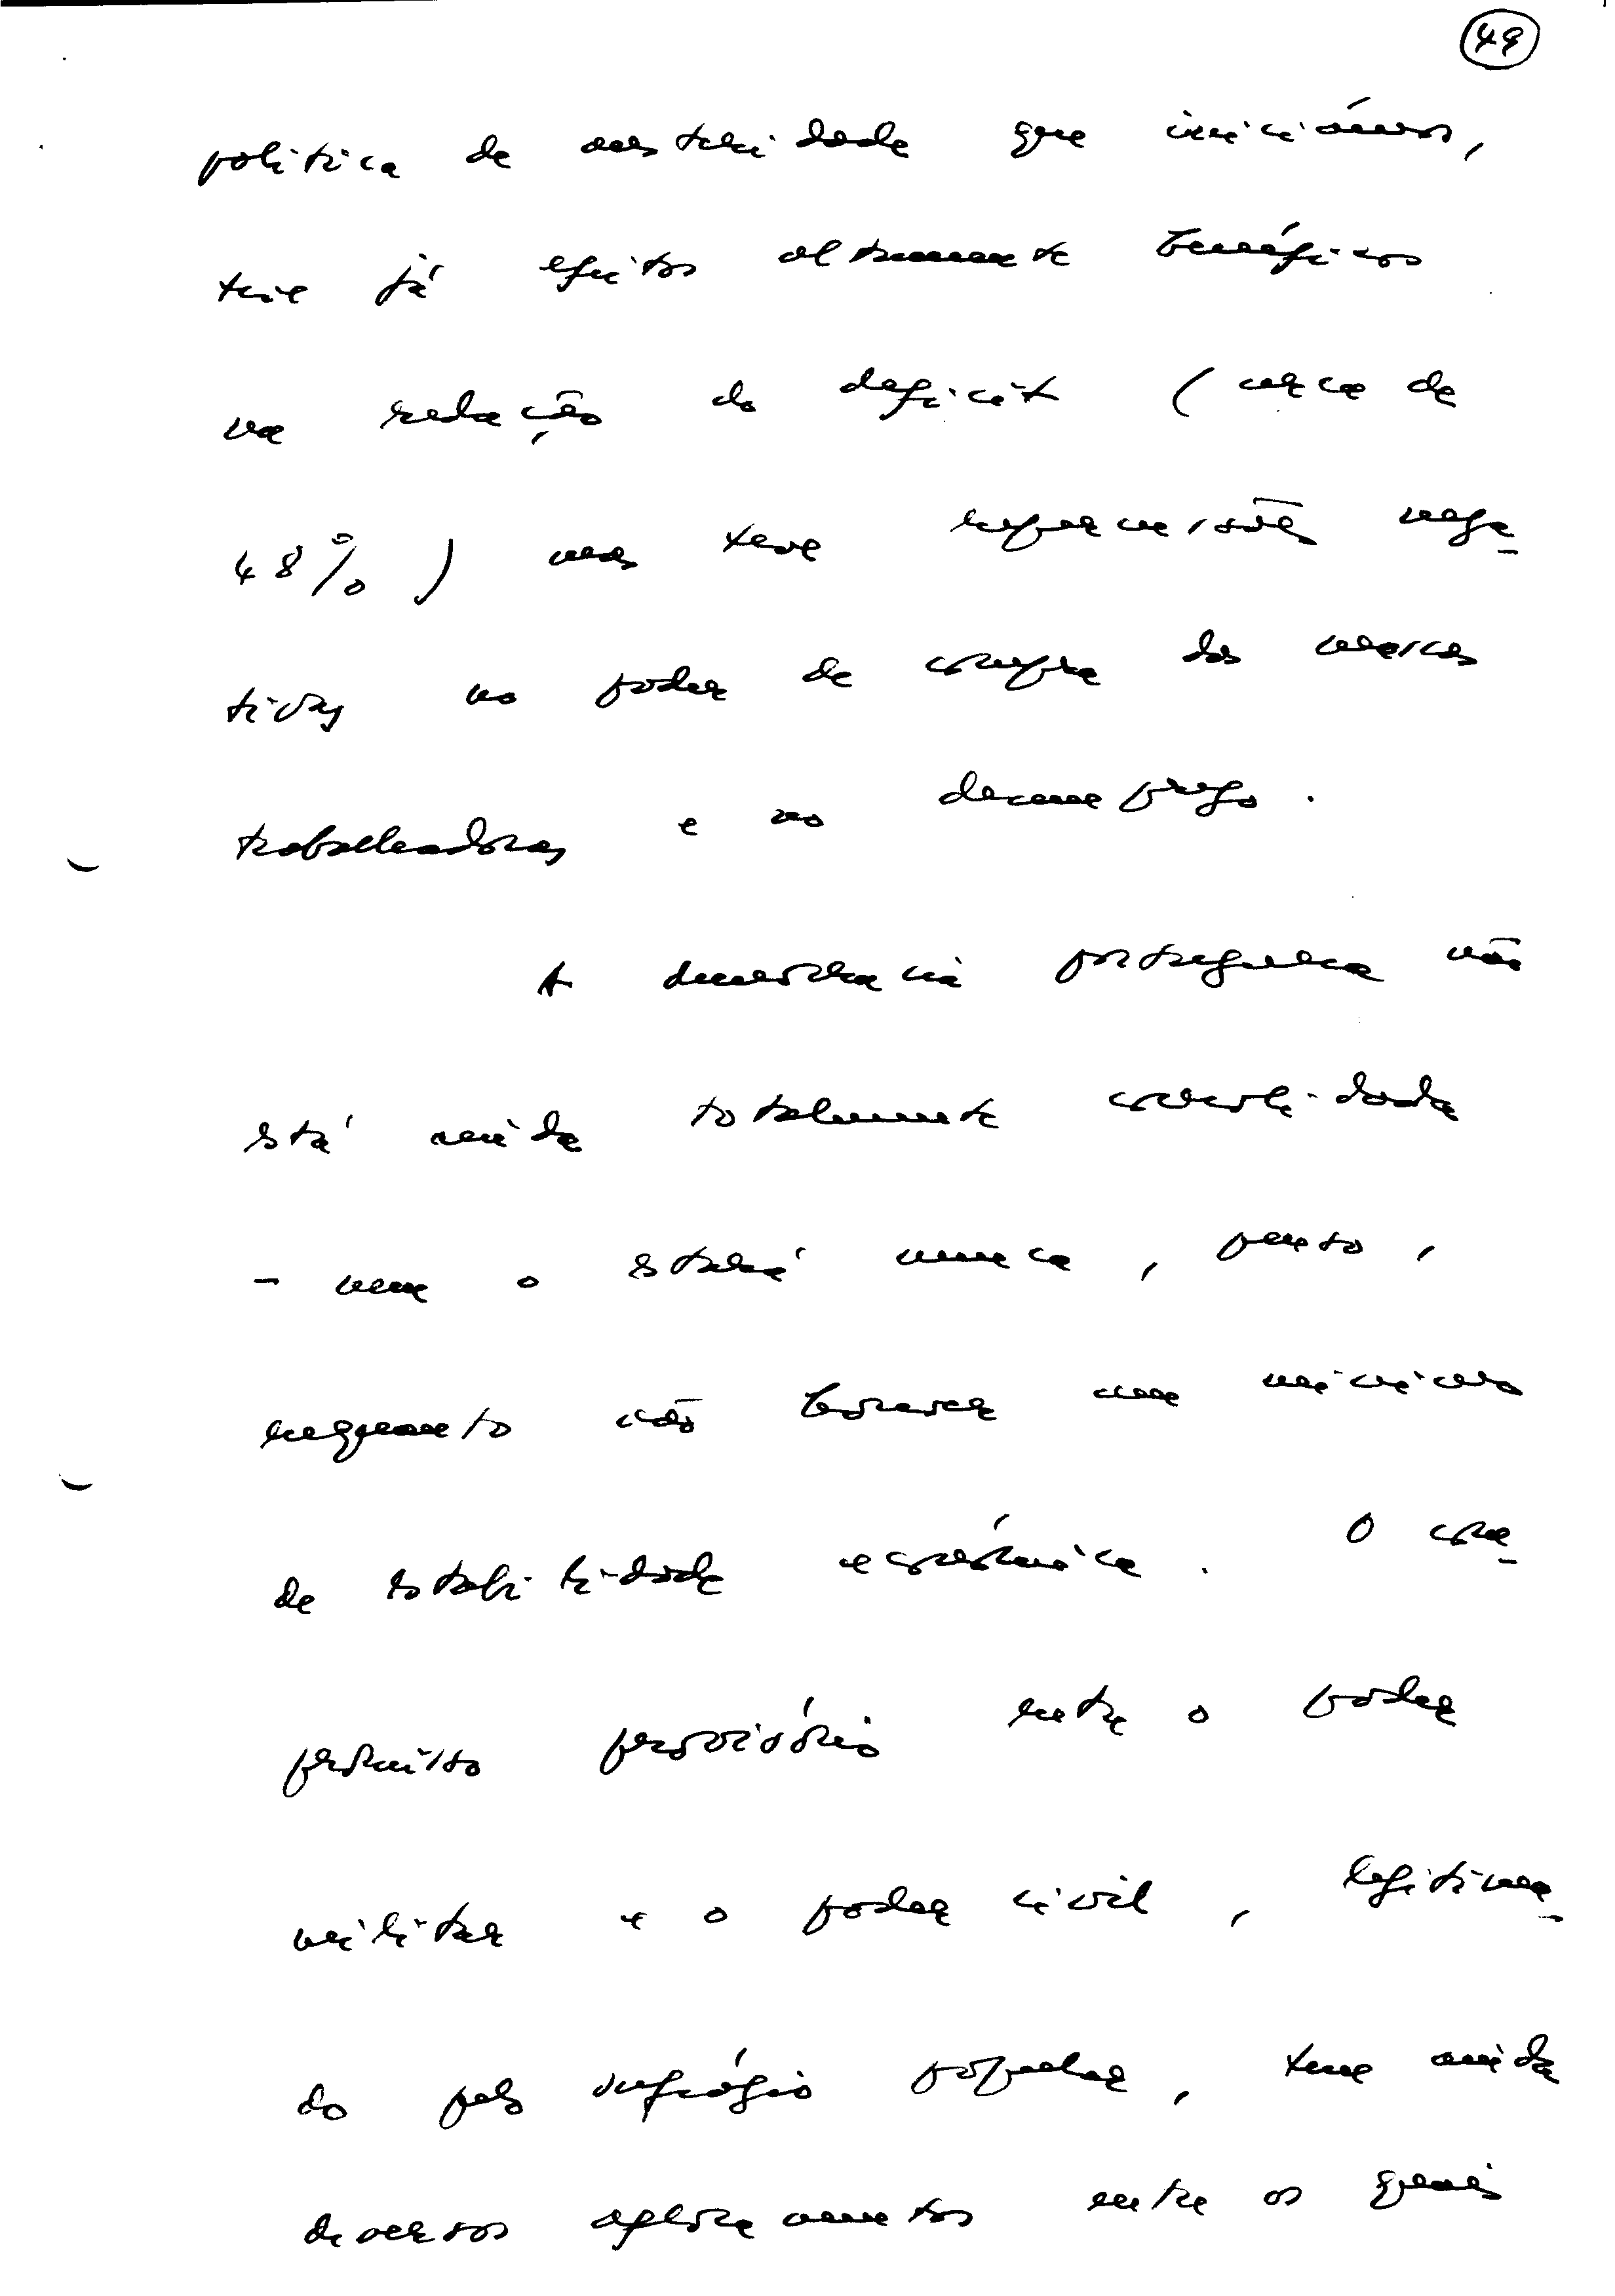 49
política de austeridade que iniciámos,
teve já efeitos altamente benéficos
na redução do deficit (cerca de
48%) mas teve repercussões nega-
tivas no poder de compra das massas
trabalhadoras e no desemprego.
A democracia portuguesa não
está ainda totalmente consolidada
- nem o estará nunca, penso,
enquanto não houver um mínimo
de estabilidade económica. O com-
promisso provisório entre o poder
militar e o poder civil, legitima-
do pelo sufrágio popular, tem ainda
diversos afloramentos entre os quais